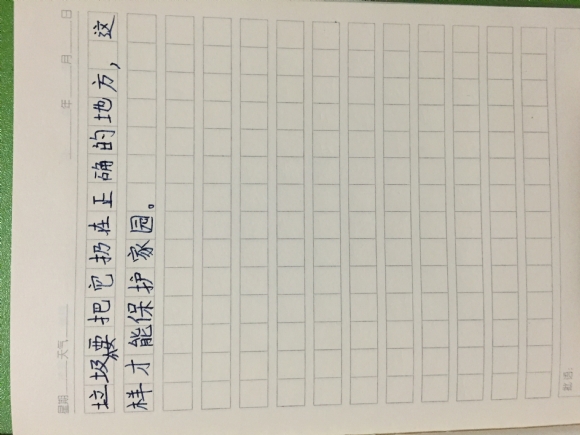 星期 天气 年 月 日
垃圾要把它扔在正确的地方，这
样才能保护家园。